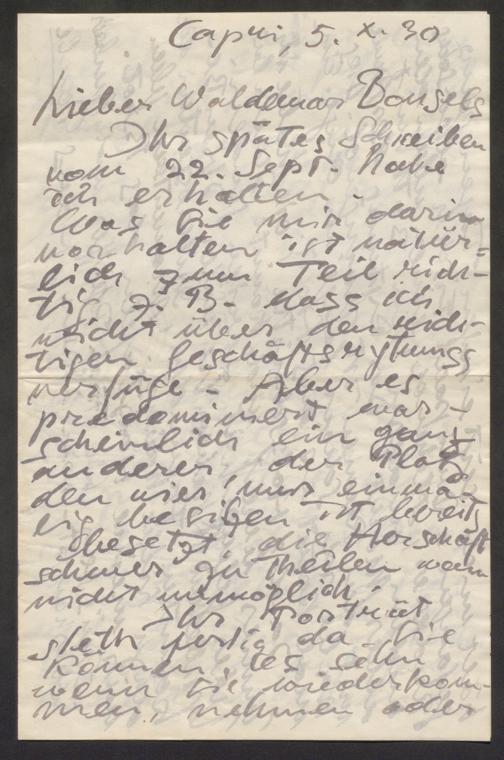 Capri, 5. X. 30
Lieber Waldemar Bonsels
Ihr spätes Schreiben
vom 22. Sept. habe
ich erhalten.
Was Sie mir darin
vorhalten ist natür=
lich zum Teil rich-
tig z. B. dass ich
nicht über den rich-
tigen Geschäftsrythmuss
verfüge - Aber es
predominiert war-
scheinlich ein ganz
anderer, der Platz
den wir, nur einma-
lig besitzen ist bereits
besetzt, die
schwer zu Theilen wenn
nicht unmöglich.
Ihr Porträt
steth fertig da. Sie
können es sehn
wenn Sie wiederkom-
men, nehmen oder